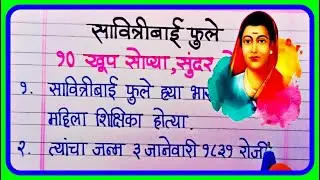 सावित्रीबाई फुले
१० खूप सोप्या, सुंदर
१. सावित्रीबाई फुले ह्या
महिला शिक्षिका होत्या.
२. त्यांचा जन्म ३ जानेवारी १८३१ रोजी